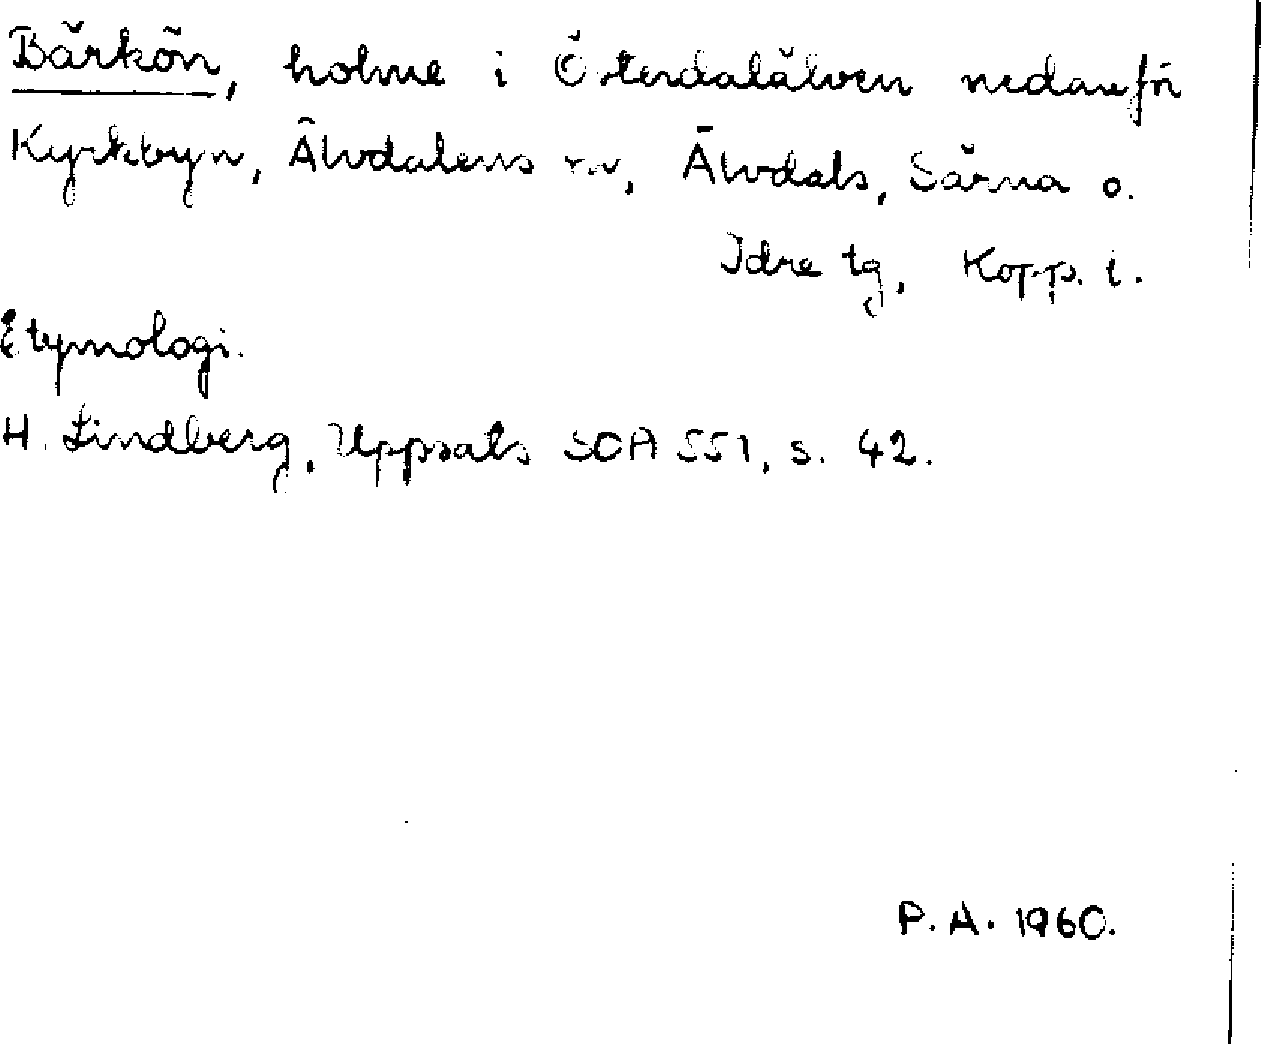 Bärkön, holme i Österdalälven nedanför
Kyrkbyn, Älvdalens sn, Älvdals, Särna o.
Idre tg, Kopp. l.
Etymologi.
H. Lindberg, Uppsats SOA 551, s. 42.
P. A. 1960.